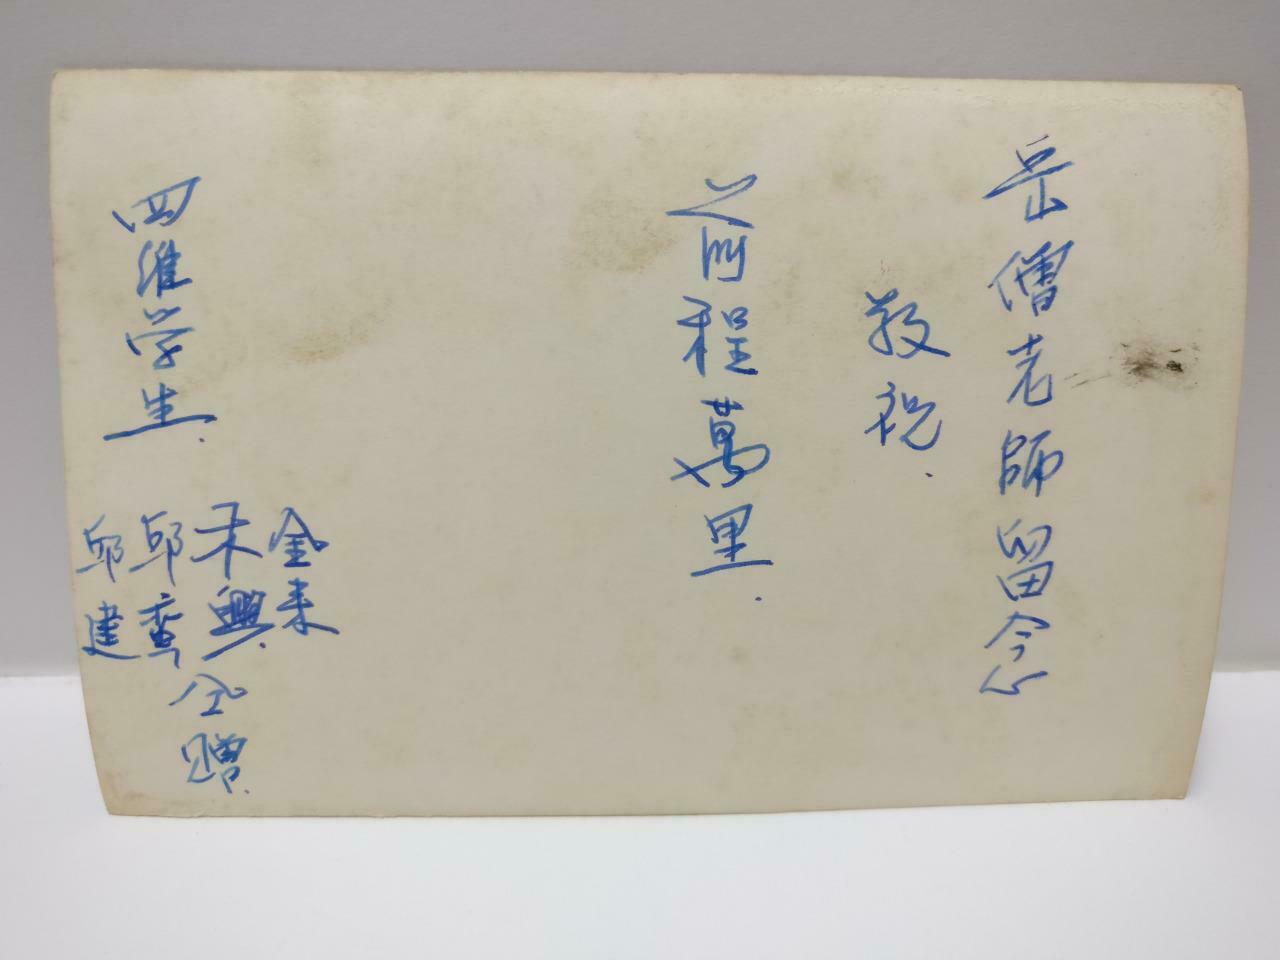 岳僧老師留念
敬祝.
前程萬里.
四維学生.
金来
興.
邱
邱建
仝贈.